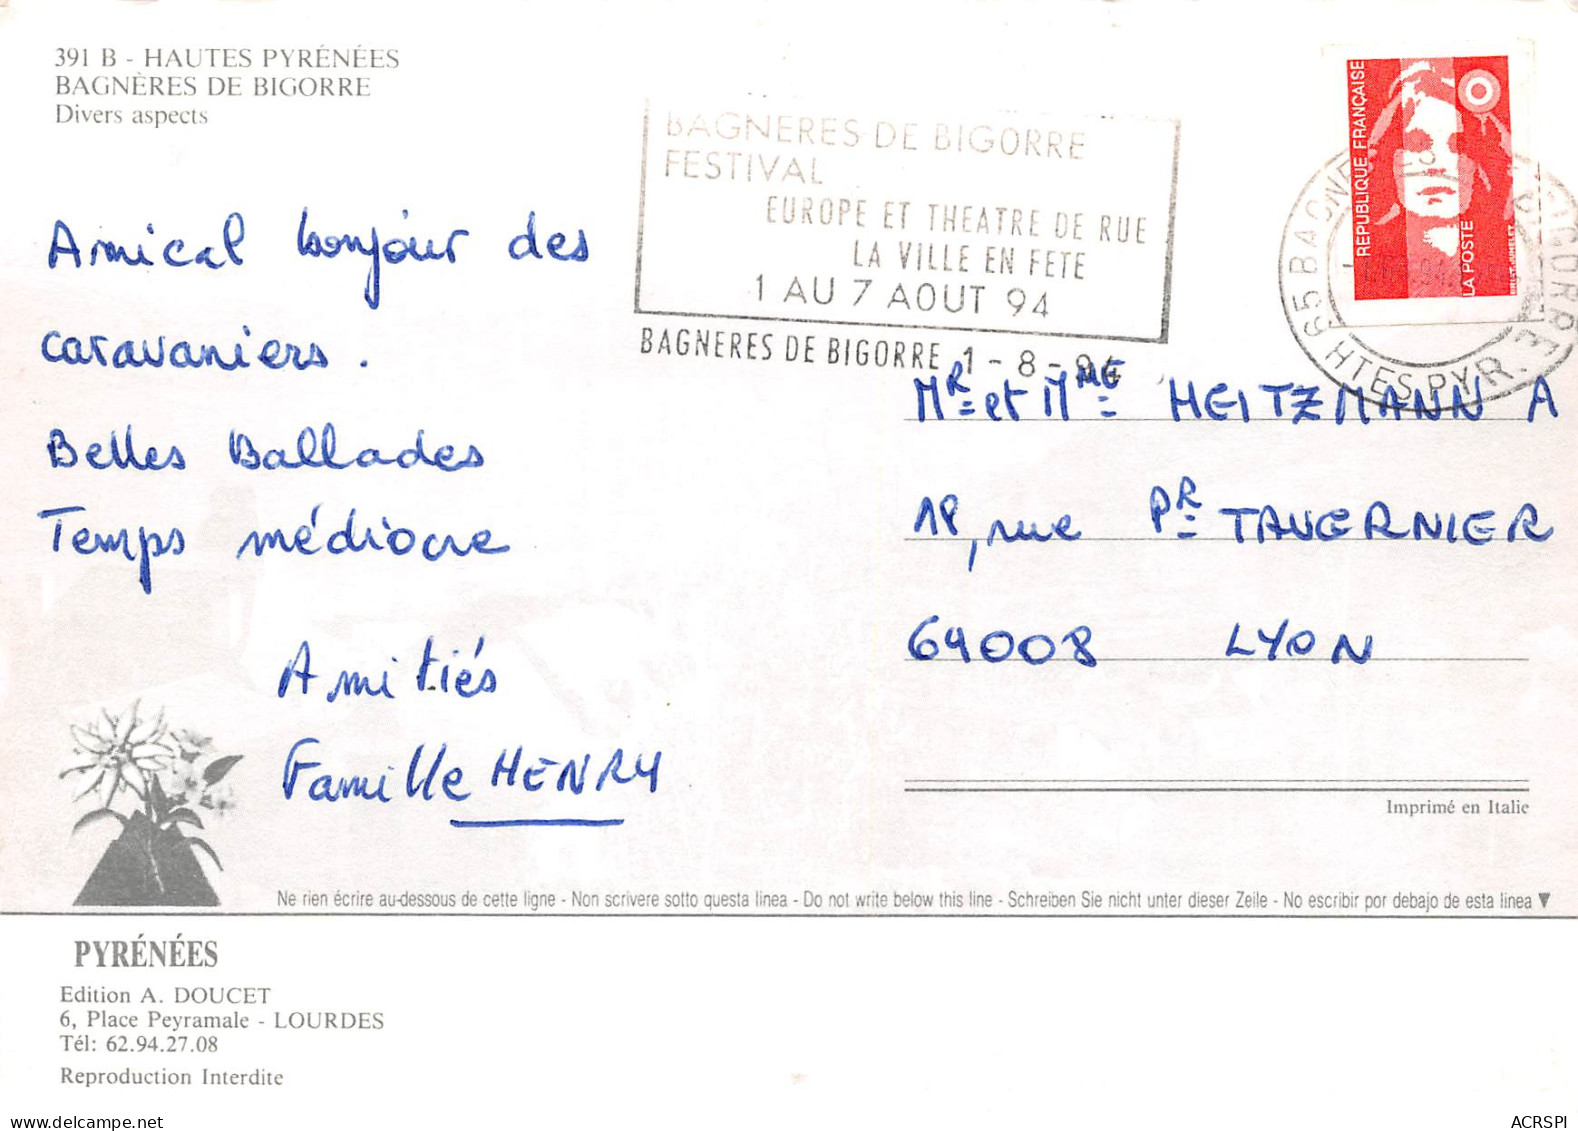 391 B - HAUTES PYRÉNÉES
BAGNÈRES DE BIGORRE
Divers aspects
BAGNERES DE BIGORRE
FESTIVAL
EUROPE ET THEATRE DE RUE
LA VILLE EN FETE
1 AU 7 AOUT 94
BAGNERES DE BIGORRE 1-8-94
RÉPUBLIQUE FRANÇAISE
LA POSTE
65 BAGNE
BIGORRE
HTES PYR.
Amical bonjour des
caravaniers.
Belles Ballades
Temps médiocre
Amitiés
Famille HENRY
MR et MME HEITZMANN A
18, rue PR TAVERNIER
69008 LYON
Imprimé en Italie
Ne rien écrire au-dessous de cette ligne - Non scrivere sotto questa linea - Do not write below this line - Schreiben Sie nicht unter dieser Zeile - No escribir por debajo de esta linea ▼
PYRÉNÉES
Edition A. DOUCET
6, Place Peyramale - LOURDES
Tél: 62.94.27.08
Reproduction Interdite
ACRSPI